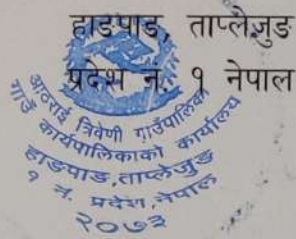 हाङपाङ, ताप्लेजुङ
प्रदेश नं. १ नेपाल
आठराई त्रिवेणी गाउँपालिका
गाउँ कार्यपालिकाको कार्यालय
हाङपाङ,ताप्लेजुङ
१ नं. प्रदेश,नेपाल
२०७३